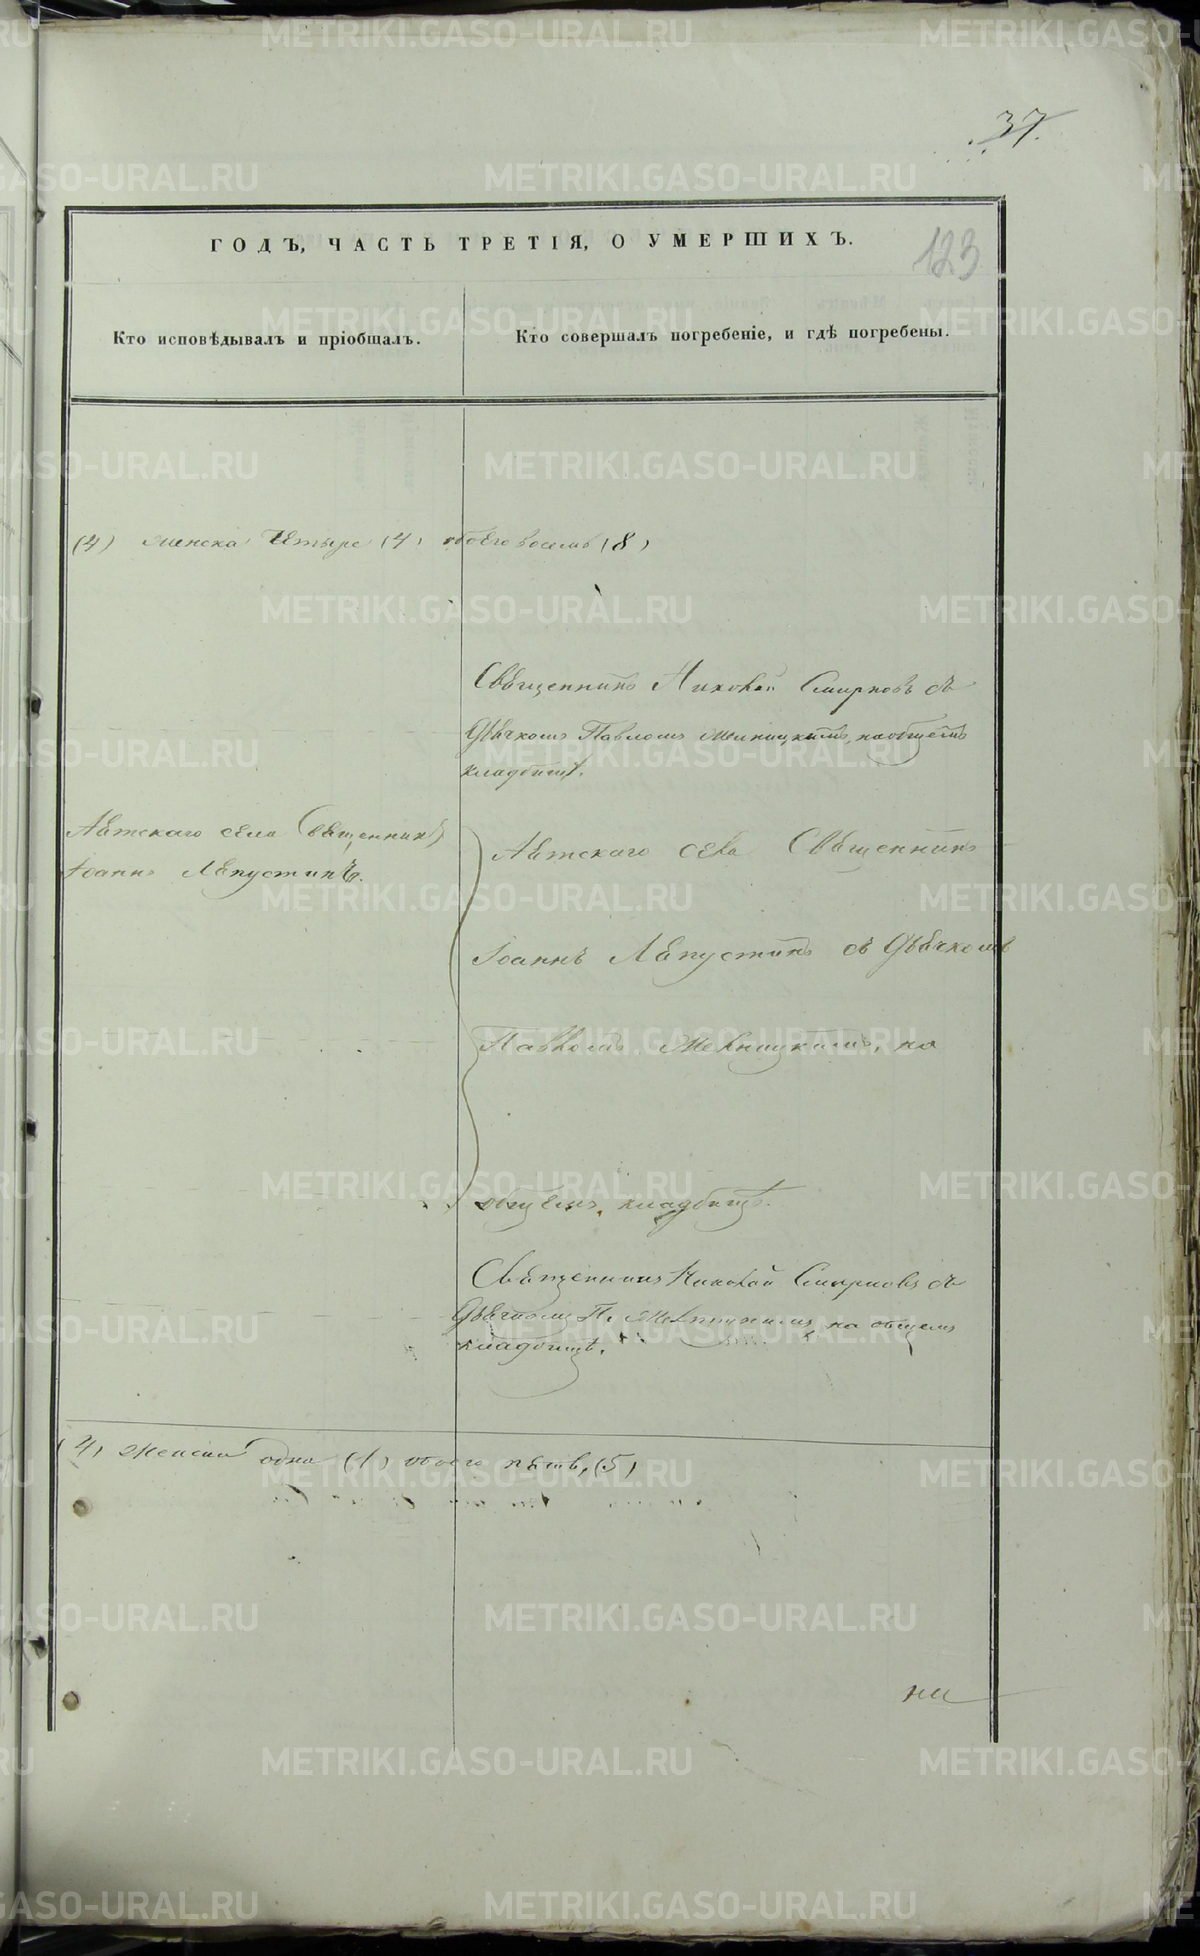 37.
123
ГОДЪ, ЧАСТЬ ТРЕТІЯ, О УМЕРШИХЪ.
Кто исповѣдывалъ и пріобщалъ.
Кто совершалъ погребеніе, и гдѣ погребены.
(4) женска четыре (4) обоего восемь (8)
Священникъ Николай Смирновъ съ
Дьячкомъ Павломъ Мелницкимъ, на общемъ
кладбищѣ.
Лѣтскаго села Священникъ
Іоаннъ Лепустинъ.
Лѣтскаго села Священникъ
Іоаннъ Лепустинъ съ Дьячкомъ
Павломъ Мелницкимъ, на
общемъ кладбищѣ.
Священникъ Николай Смирновъ съ
Дьячкомъ П. Мелницкимъ, на общемъ
кладбищѣ.
(4) женска одна (1) обоего пять (5)
METRIKI.GASO-URAL.RU